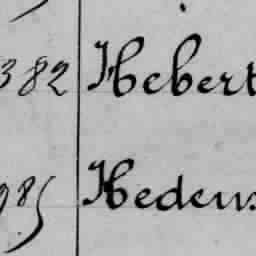 382 Hebert
985 Hedeus